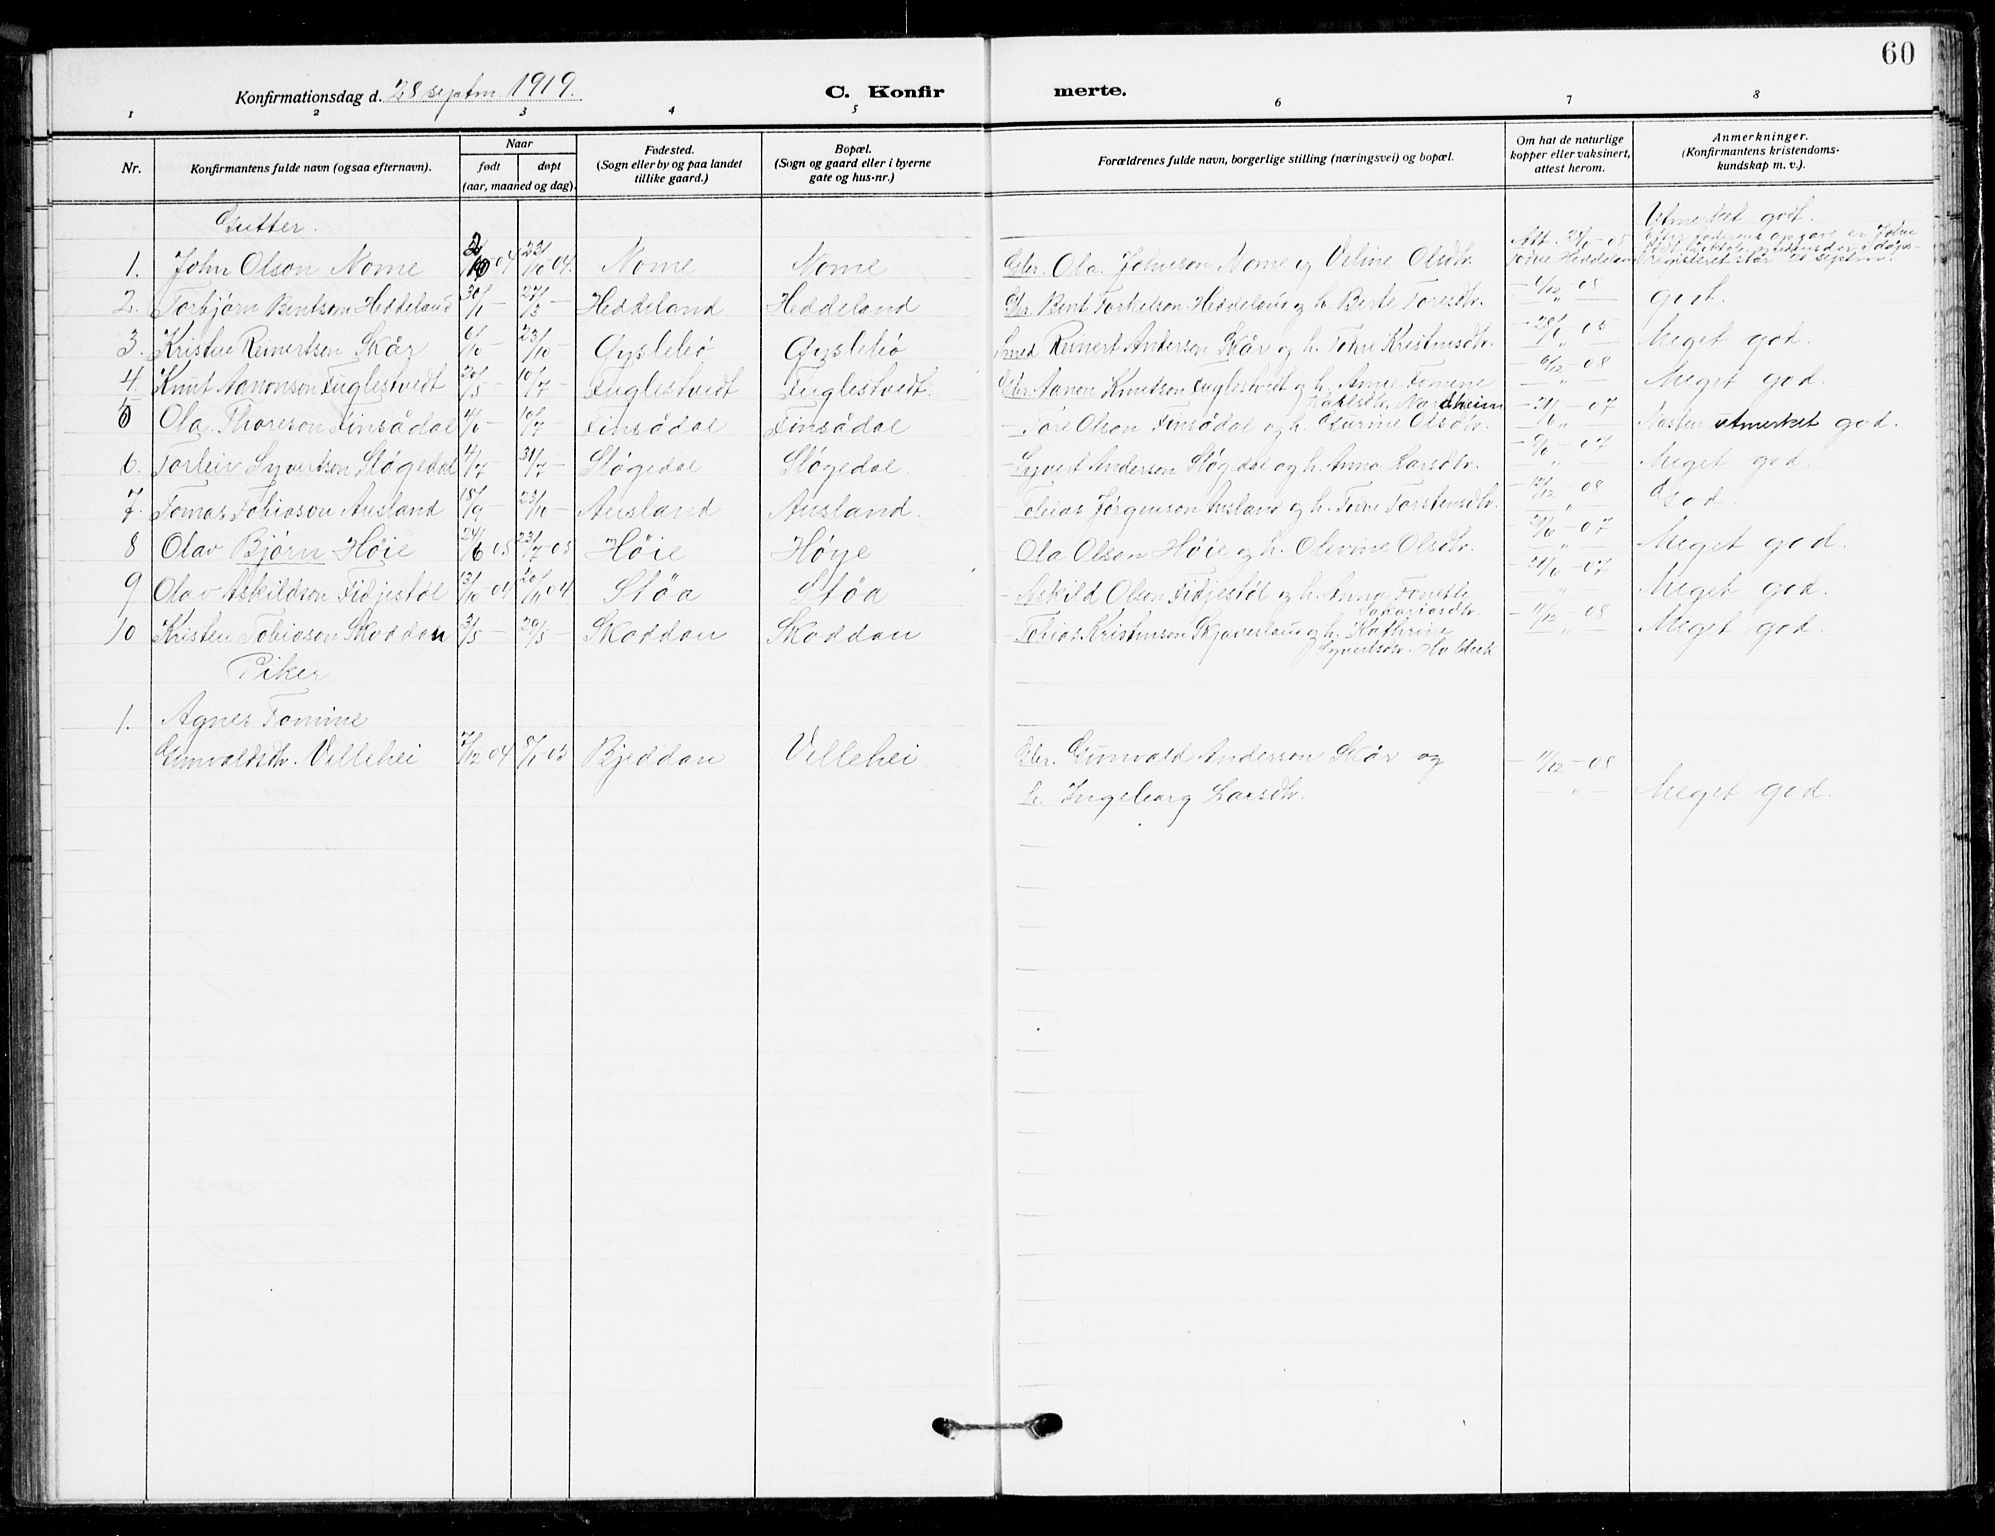 60
Konfirmationsdag d. 28 septm. 1919. C. Konfir merte.
1 2 3 4 5 6 7 8
Nr. Konfirmantens fulde navn (ogsaa efternavn). Naar født døpt (aar, maaned og dag). Fødested. (Sogn eller by og paa landet tillike gaard.) Bopæl. (Sogn og gaard eller i byerne gate og hus-nr.) Forældrenes fulde navn, borgerlige stilling (næringsvei) og bopæl. Om hat de naturlige kopper eller vaksinert, attest herom. Anmerkninger. (Konfirmantens kristendomskundskap m. v.).
Gutter.
Utmerket godt.
1. John Olson Nome 2/10 04 23/10 04. Nome Nome Gbr. Ola Johnson Nome og Veline Olsdtr. Att. Tore Heddeland
2. Torbjørn Bentson Heddeland 30/1 27/3 — Heddeland Heddeland Gbr. Bent Torkelson Heddeland og h. Berte Toresdtr. — 6/12 — 08 godt.
3. Kristen Reinertsen Skår 6/10 23/10 — Gyslebø Gyslebø Smed Reinert Anderson Skår og h. Tone Kristensdtr. Meget god.
4. Knut Aanonson Fuglestvedt 20/5 10/7 — Fuglestvedt Fuglestvedt. Gbr. Aanon Knutson Fuglestvedt og h. Anne Tomine Karlsdtr. Nordheim — 6/12 — 08 Meget god.
5 Ola Thoreson Finsådal 4/6 10/7 — Finsådal Finsådal — Tore Olson Finsådal og h. Gurine Olsdtr. — 07 Næsten utmerket god.
6. Torleiv Syvertson Sløgedal 4/7 31/7 — Sløgedal Sløgedal. — Syvert Anderson Sløgedal og h. Anna Larsdtr. — 07 Meget god.
7. Tomas Tobiason Ausland 18/9 23/10 — Ausland Ausland. — Tobias Jørgenson Ausland og h. Tone Torstensdtr. — 08 God.
8 Olav Bjørn Høie 24/6 05 23/7 05 Høie Høye — Ola Olson Høie og h. Olevine Olsdtr. — 07 Meget god.
9 Olav Askildson Fidjestøl 13/10 04 20/11 04 Støa Støa — Askild Olson Fidjestøl og h. Anna Tonette Sakariasdtr. — 07 Meget god.
10 Kristen Tobiason Skoddan 3/5 29/5 — Skoddan Skoddan — Tobias Kristenson Skjævesland og h. Kathrine Syvertsdtr. — 11/12 — 08 Meget god.
Piker
1. Agnes Tomine
Gunvaldsdtr. Vellehei 7/12 04 8/1 05 Bjeddan Vellehei Gbr. Gunvald Anderson Skår og — 11/12 — 08
h. Ingeborg Larsdtr. — „ — Meget god.